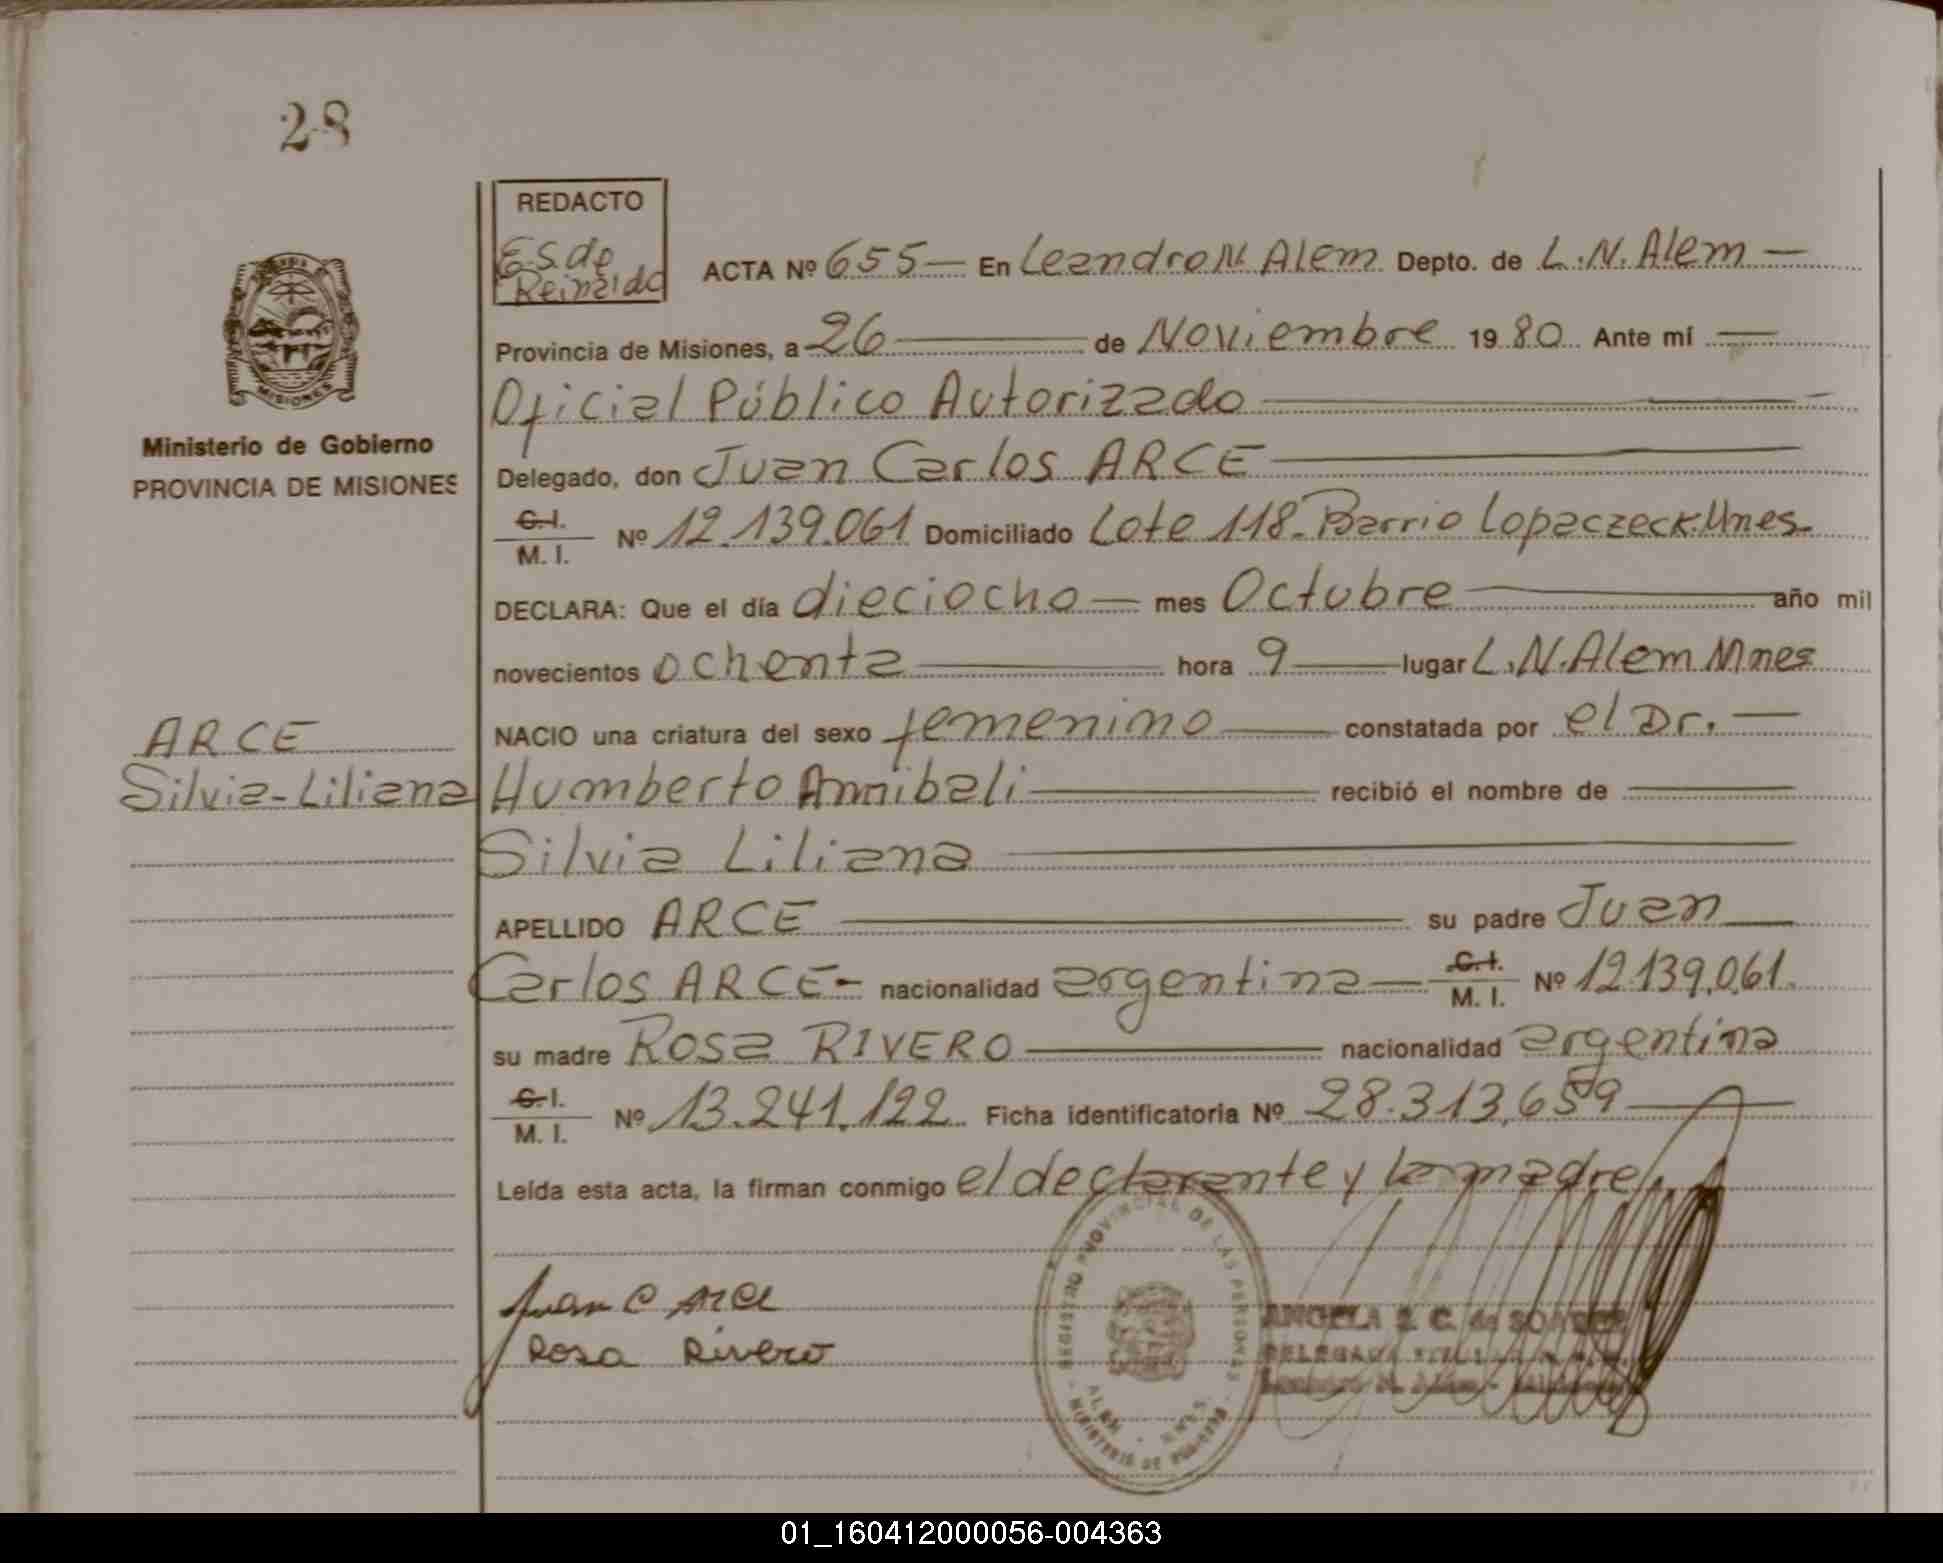 28
REDACTO
E.S. de
Reinaldo
ACTA Nº 655 En Leandro N. Alem Depto. de L.N. Alem
Provincia de Misiones, a 26 de Noviembre 1980 Ante mí
Oficial Público Autorizado
MISIONES
Ministerio de Gobierno
PROVINCIA DE MISIONES
Delegado, don Juan Carlos ARCE
C.I.
M.I. Nº 12.139.061 Domiciliado Lote 118-Barrio Lopaczeck.Mnes.
DECLARA: Que el día dieciocho mes Octubre año mil
novecientos ochenta hora 9 lugar L.N. Alem Mnes
ARCE
Silvia-Liliana
NACIO una criatura del sexo femenino constatada por el Dr.
Humberto Annibali recibió el nombre de
Silvia Liliana
APELLIDO ARCE su padre Juan
Carlos ARCE- nacionalidad argentina C.I.
M.I. Nº 12.139.061.
su madre Rosa RIVERO nacionalidad argentina
C.I.
M.I. Nº 13.241.122 Ficha identificatoria Nº 28.313.659
Leída esta acta, la firman conmigo el declarante y la madre.
Juan C Arce
Rosa Rivero
REGISTRO PROVINCIAL DE LAS PERSONAS
ALEM - MNES.
MINISTERIO DE GOBIERNO
ANGELA S. C. de SOAREZ
DELEGADA TITULAR
Leandro N. Alem - Misiones
01_160412000056-004363